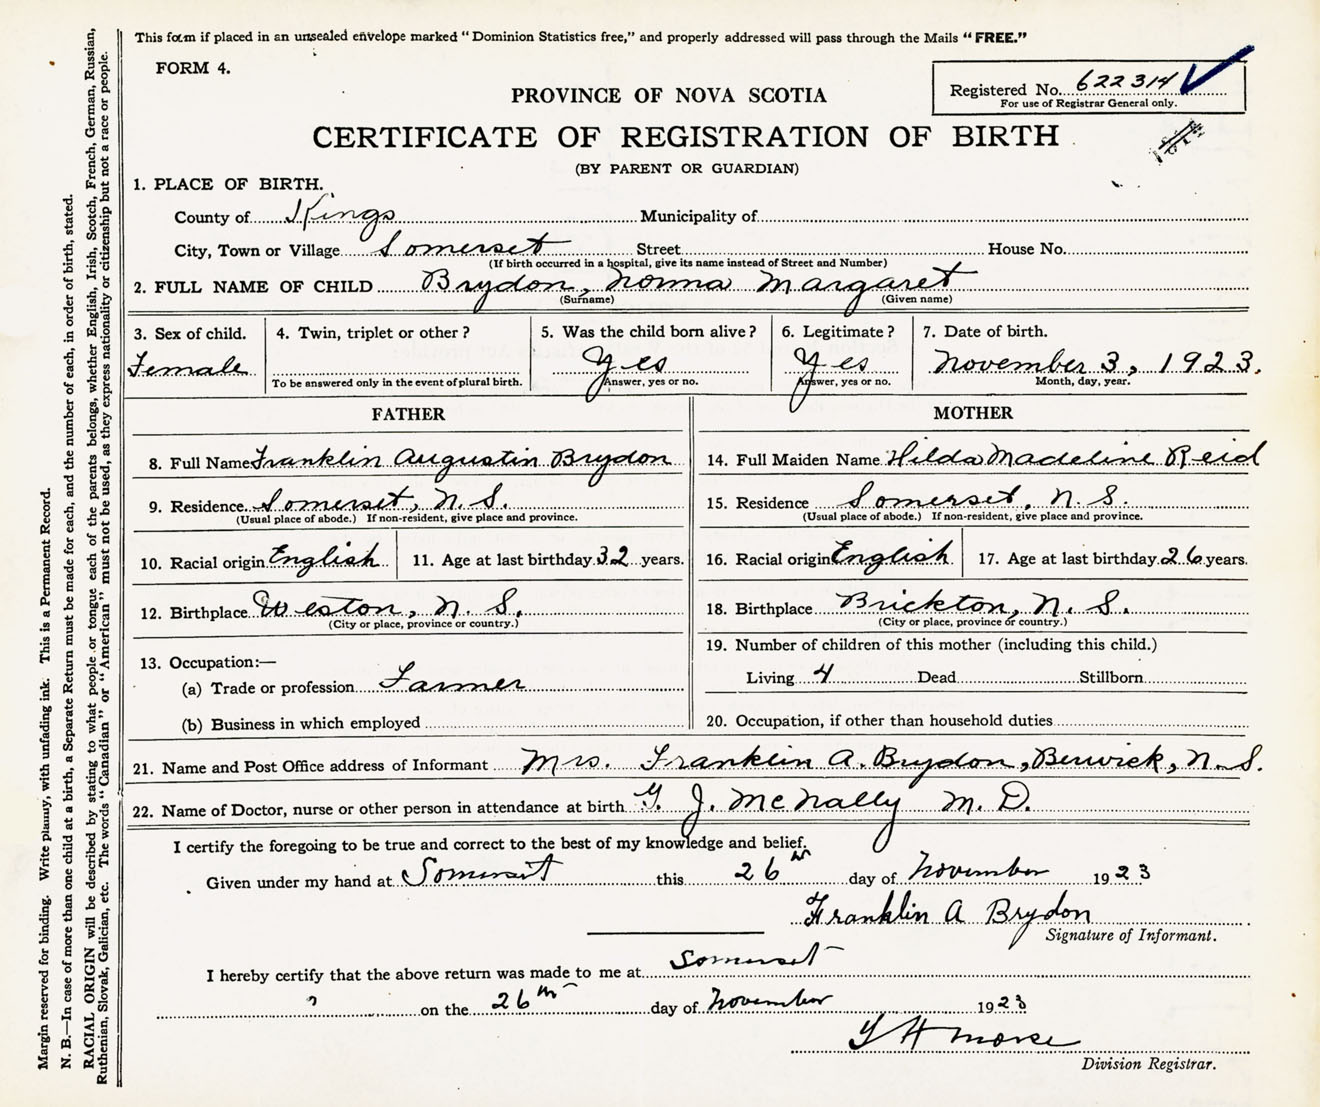 This form if placed in an unsealed envelope marked "Dominion Statistics free," and properly addressed will pass through the Mails "FREE."
FORM 4.
Registered No. 622314
For use of Registrar General only.
PROVINCE OF NOVA SCOTIA
CERTIFICATE OF REGISTRATION OF BIRTH
(BY PARENT OR GUARDIAN)
1. PLACE OF BIRTH.
County of Kings Municipality of
City, Town or Village Somerset Street House No.
(If birth occurred in a hospital, give its name instead of Street and Number)
2. FULL NAME OF CHILD Brydon, Norma Margaret
(Surname) (Given name)
3. Sex of child. 4. Twin, triplet or other? 5. Was the child born alive? 6. Legitimate? 7. Date of birth.
Female Yes Yes November 3, 1923.
To be answered only in the event of plural birth. Answer, yes or no. Answer, yes or no. Month, day, year.
FATHER MOTHER
8. Full Name Franklin Augustin Brydon 14. Full Maiden Name Hilda Madeline Reid
9. Residence Somerset, N.S. 15. Residence Somerset, N.S.
(Usual place of abode.) If non-resident, give place and province. (Usual place of abode.) If non-resident, give place and province.
10. Racial origin English 11. Age at last birthday 32 years. 16. Racial origin English 17. Age at last birthday 26 years.
12. Birthplace Weston, N.S. 18. Birthplace Brickton, N.S.
(City or place, province or country.) (City or place, province or country.)
19. Number of children of this mother (including this child.)
13. Occupation:—
(a) Trade or profession Farmer Living 4 Dead Stillborn
(b) Business in which employed 20. Occupation, if other than household duties
21. Name and Post Office address of Informant Mrs. Franklin A. Brydon, Berwick, N.S.
22. Name of Doctor, nurse or other person in attendance at birth G. J. McNally M.D.
I certify the foregoing to be true and correct to the best of my knowledge and belief.
Given under my hand at Somerset this 26th day of November 1923
Franklin A Brydon
Signature of Informant.
I hereby certify that the above return was made to me at Somerset
on the 26th day of November 1923
Morse
Division Registrar.
Margin reserved for binding. Write plainly, with unfading ink. This is a Permanent Record.
N. B.—In case of more than one child at a birth, a Separate Return must be made for each, and the number of each, in order of birth, stated.
RACIAL ORIGIN will be described by stating to what people or tongue each of the parents belongs, whether English, Irish, Scotch, French, German, Russian,
Ruthenian, Slovak, Galician, etc. The words "Canadian" or "American" must not be used, as they express nationality or citizenship but not a race or people.